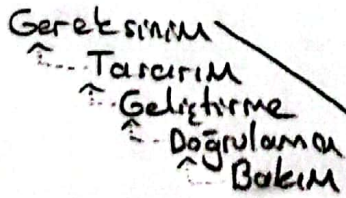 Gereksinim
Tasarım
Geliştirme
Doğrulama
Bakım